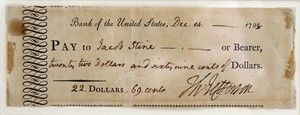 Bank of the United States, Dec. 14 1793
PAY to Jacob Stine or Bearer,
twenty two dollars and sixty nine cents of DOLLARS.
22. DOLLARS 69. cents Th: Jefferson